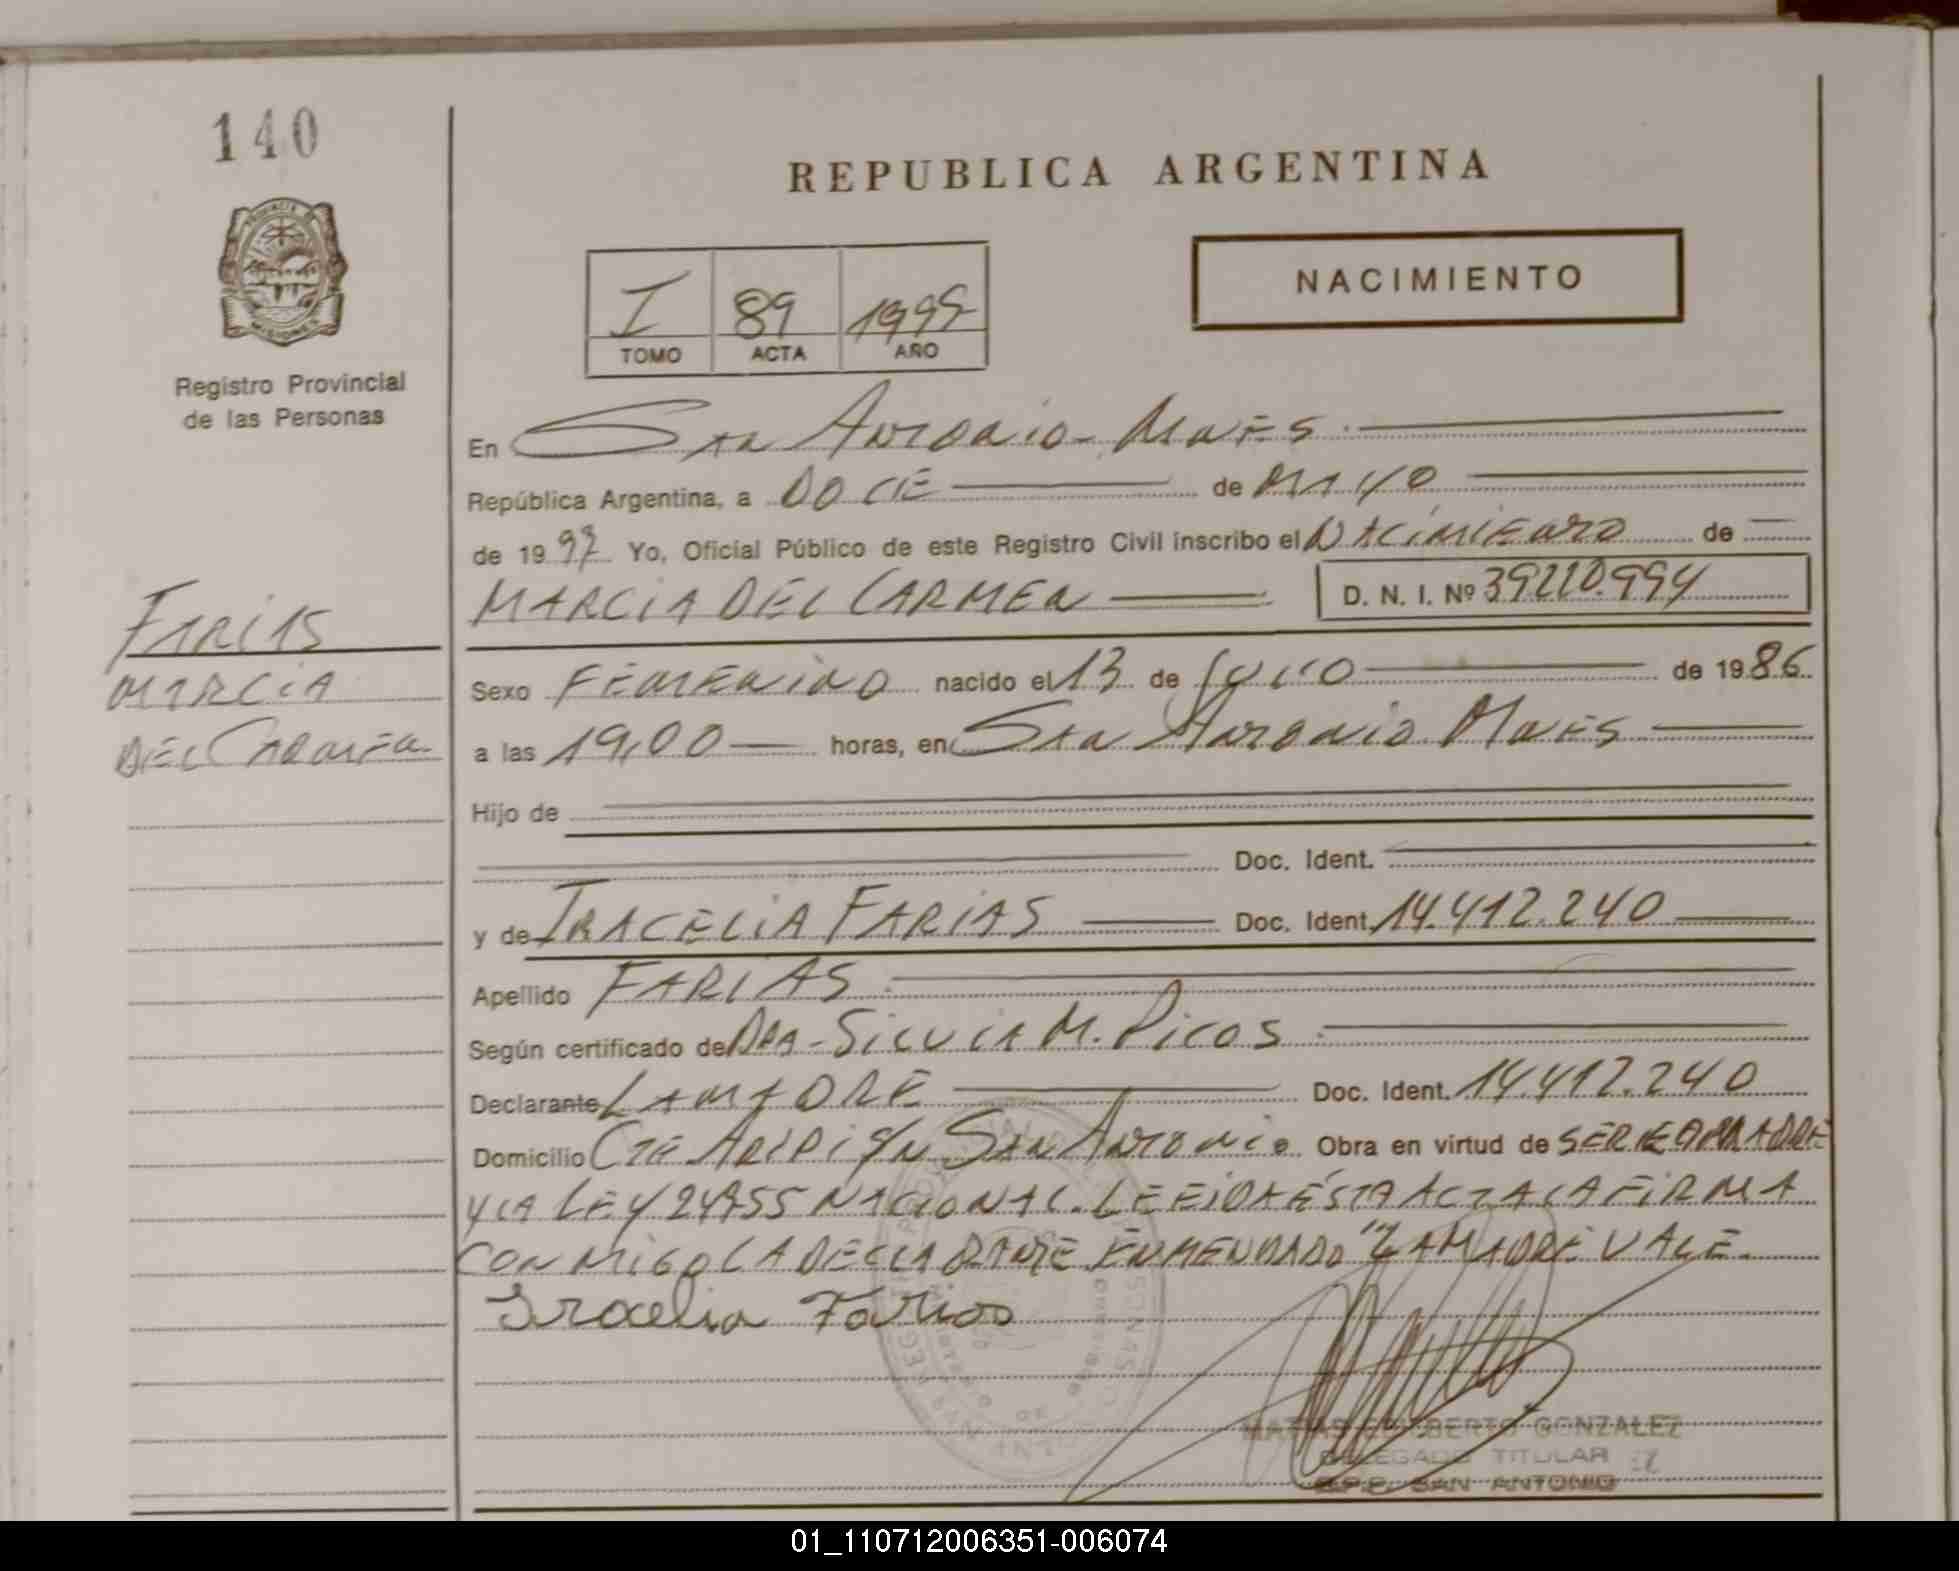 140
REPUBLICA ARGENTINA
PROVINCIA DE
MISIONES
NACIMIENTO
I 89 1997
TOMO ACTA AÑO
Registro Provincial
de las Personas
En San Antonio - Mnes
República Argentina, a DOCE de MAYO
de 1997 Yo, Oficial Público de este Registro Civil inscribo el NACIMIENTO de
MARCIA DEL CARMEN D. N. I. Nº 39210.994
FARIAS
MARCIA
DEL CARMEN
Sexo FEMENINO nacido el 13 de JULIO de 1986
a las 19,00 horas, en San Antonio Mnes
Hijo de
Doc. Ident.
y de IRACELIA FARIAS Doc. Ident. 14.412.240
Apellido FARIAS
Según certificado de DRA - SILVIA M. PICOS
Declarante LA MADRE Doc. Ident. 14.412.240
Domicilio CTE ARIPI S/N San Antonio Obra en virtud de SER MADRE
Y LA LEY 24755 NACIONAL. LEEIDA ÉSTA ACTA LA FIRMA
CONMIGO LA DECLARANTE ENMENDADO "LA MADRE VALE
Iracelia Farias
GONZALEZ
DELEGADO TITULAR
R.P.P. SAN ANTONIO
01_110712006351-006074